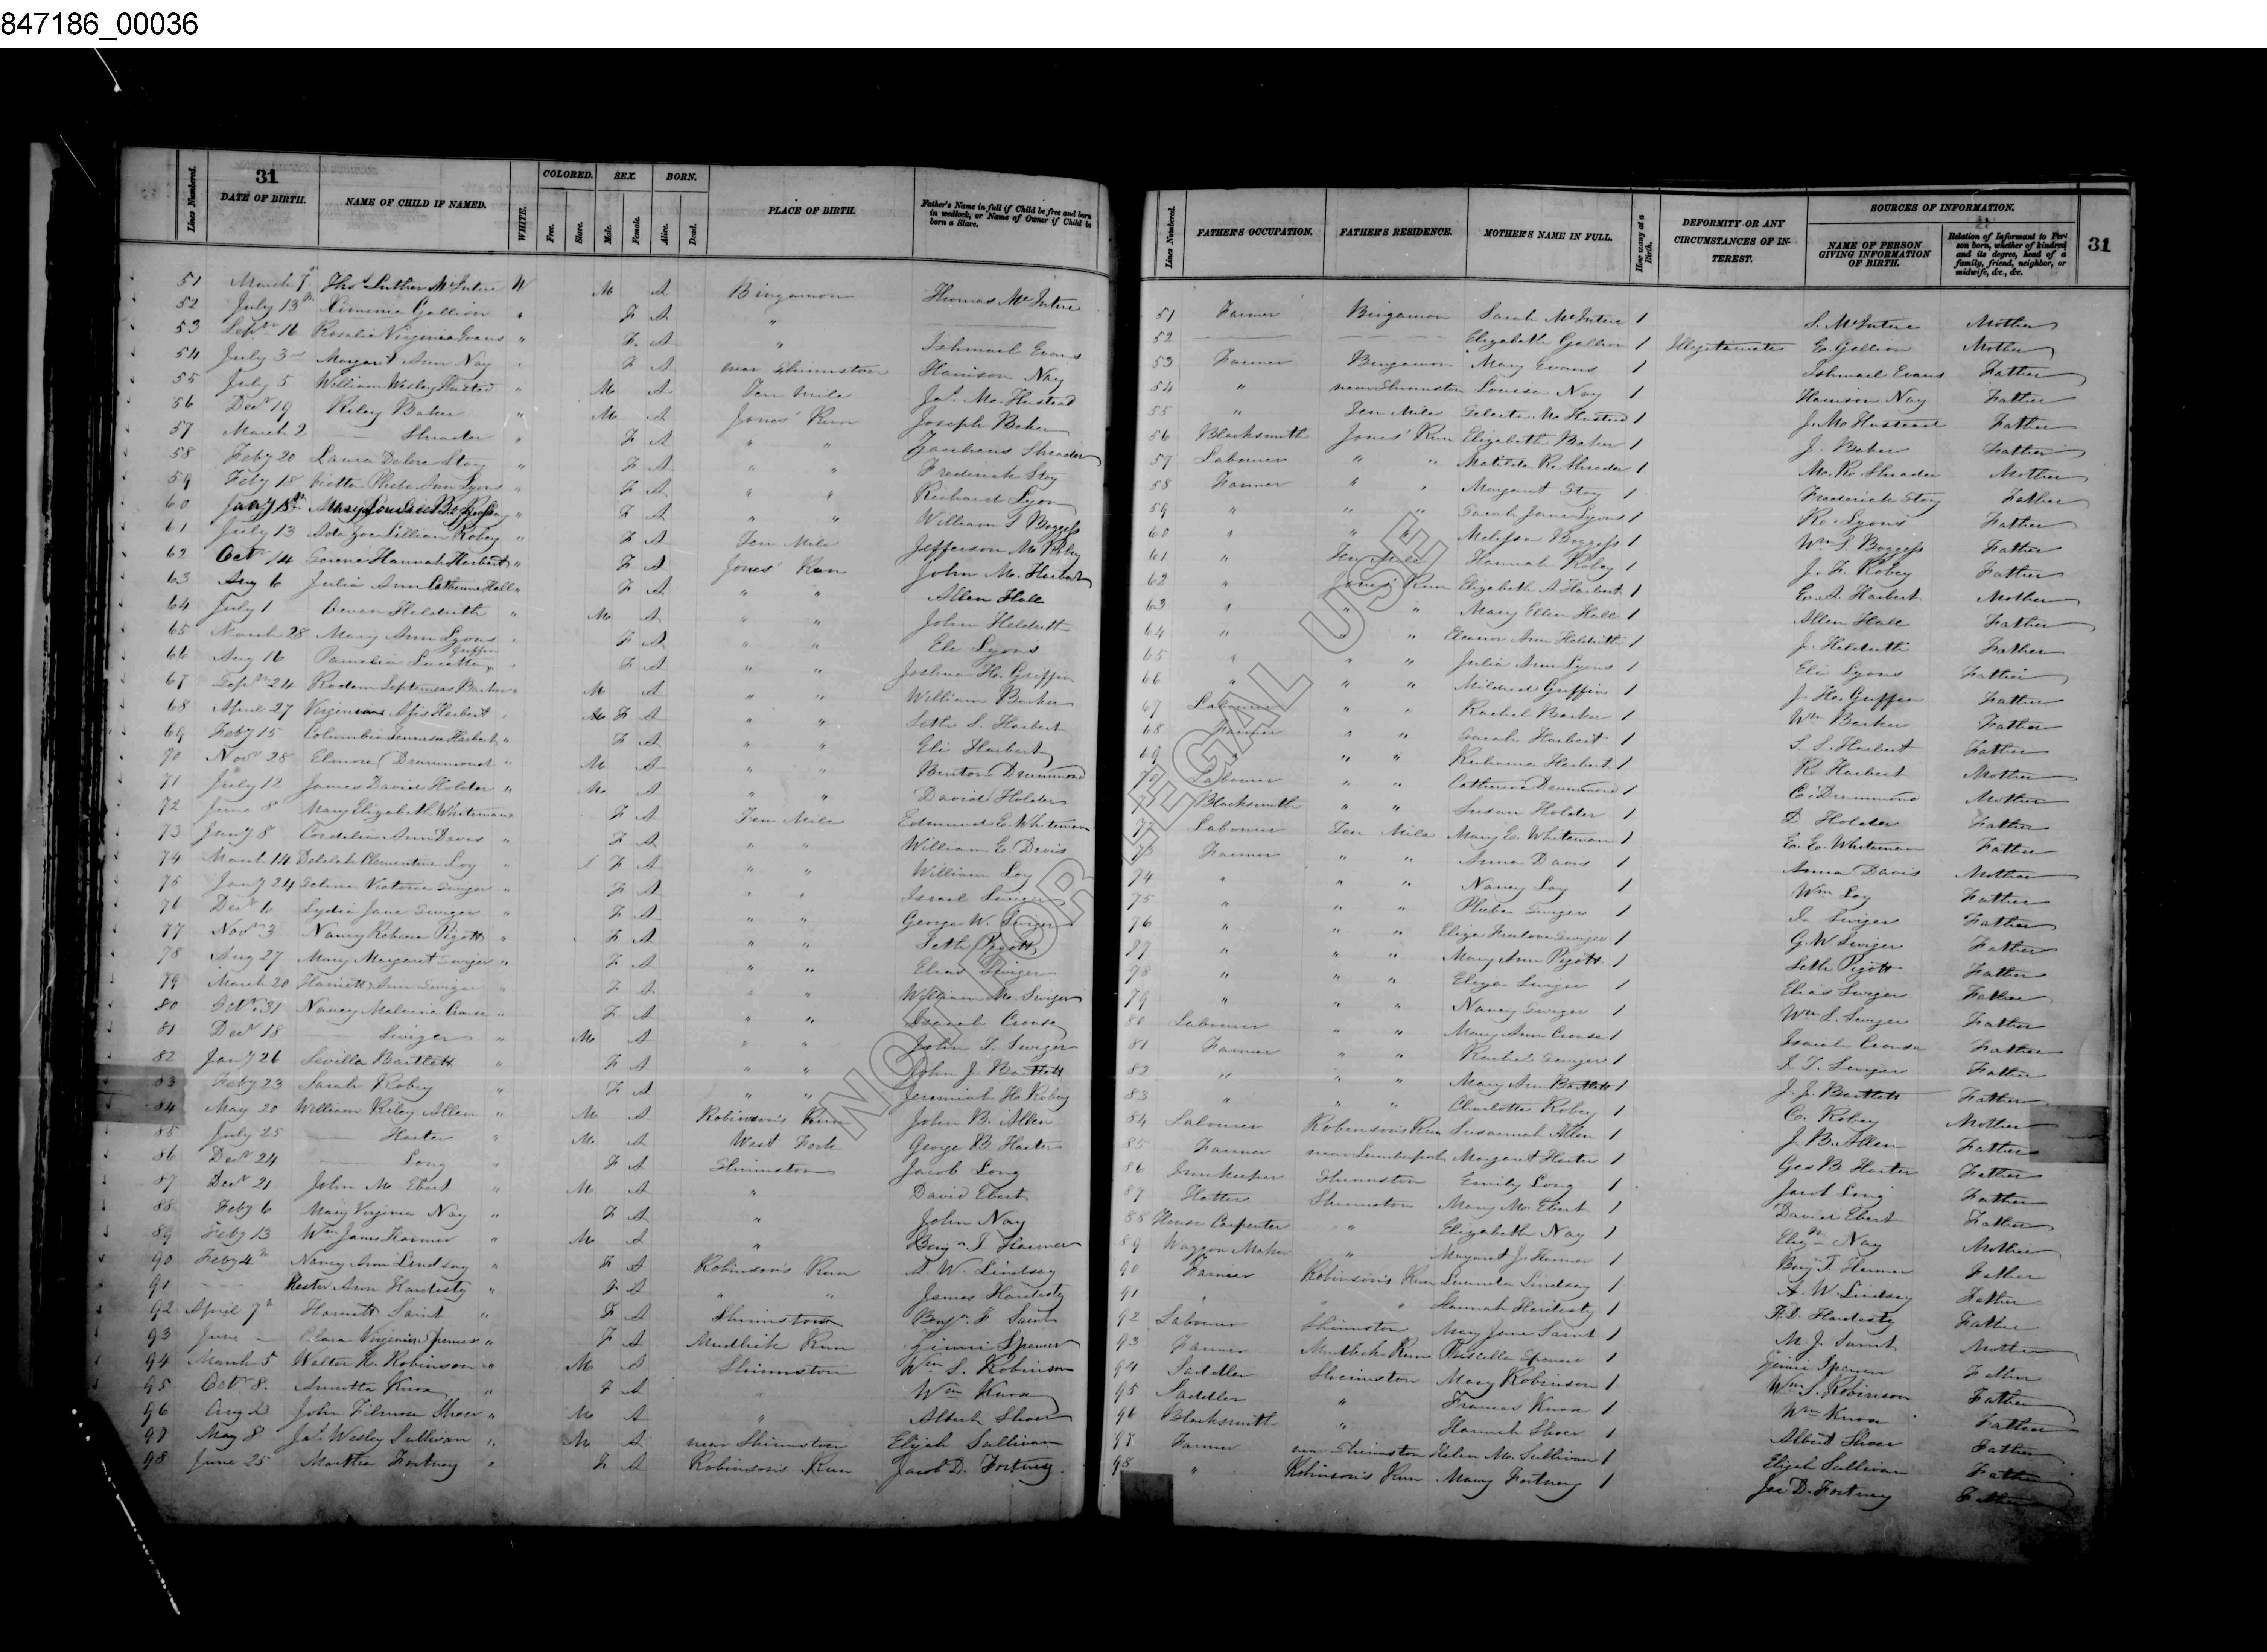 847186_00036
31
Lines Numbered. DATE OF BIRTH. NAME OF CHILD IF NAMED. WHITE. COLORED. Free. Slave. SEX. Male. Female. BORN. Alive. Dead. PLACE OF BIRTH. Father's Name in full if Child be free and born in wedlock, or Name of Owner if Child be born a Slave.
51 March 7 Thos Luther McIntire W M A Bingamon Thomas McIntire
52 July 13th Gallion " F A "
53 Sept 16 Rosalia Virginia Evans " F A " Ishmael Evans
54 July 3rd Margaret Ann Nay " F A near Shinnston Harrison Nay
55 July 5 William Wesley Husted " M A Ten Mile Jas. M. Hustead
56 Decr 19 Riley Baker " M A Jones' Run Joseph Baker
57 March 2 — Shrader " F A " " Shrader
58 Feby 20 Laura Stoy " F A " " Frederick Stoy
59 Feby 18 Phebe Ann Lyons " F A " " Richard Lyon
60 Jany " F A " " William S Boggess
61 July 13 Ada Zoe Lillian Robey " F A Ten Mile Jefferson M Robey
62 Octr 14 Hannah Harbert " F A Jones' Run John M. Harbert
63 Aug 6 Julia Ann Catherine Hall " F A " " Allen Hall
64 July 1 Owen Hildreth " M A " " John Hildreth
65 March 28 Mary Ann Lyons " F A " " Eli Lyons
66 Aug 16 Pamelia Griffin " F A " " Joshua H. Griffin
67 Septr 24 Barker " M A " " William Barker
68 April 27 Harbert " F A " " Seth S. Harbert
69 Feby 15 Columbia Harbert " F A " " Eli Harbert
70 Novr 28 Elmore Drummond " M A " " Benton Drummond
71 July 12 James David Holder " M A " " David Holder
72 June 8 Mary Elizabeth Whiteman " F A Ten Mile Edmund E. Whiteman
73 Jany 8 Cordelia Ann Davis " F A " " William E. Davis
74 March 14 Delilah Clementine Loy " F A " " William Loy
75 Jany 24 Victoria Swiger " F A " " Israel Swiger
76 Decr 6 Lydia Jane Swiger " F A " " George W. Swiger
77 Novr 3 Nancy Rebecca Pigott " F A " " Seth Pigott
78 Aug 27 Mary Margaret Swiger " F A " " Elias Swiger
79 March 20 Harriett Ann Swiger " F A " " William M. Swiger
80 Octr 31 Nancy Malvina Crouse " F A " " Isaiah Crouse
81 Decr 18 — Swiger " M A " " John T. Swiger
82 Jany 26 Sevilla Bartlett " F A " " John J. Bartlett
83 Feby 23 Sarah Robey " F A " " Jeremiah H. Robey
84 May 20 William Riley Allen " M A Robinson's Run John B. Allen
85 July 25 — Harter " M A West Fork George B. Harter
86 Decr 24 — Long " F A Shinnston Jacob Long
87 Decr 21 John M. Ebert " M A " David Ebert
88 Feby 6 Mary Virginia Nay " F A " John Nay
89 Feby 13 Wm James Harmer " M A " Benjn T. Harmer
90 Feby 4th Nancy Ann Lindsay " F A Robinson's Run A. W. Lindsay
91 — Hester Ann Hardesty " F A " " James Hardesty
92 April 7th Harriett Saint " F A Shinnston Benjn F Saint
93 June — Clara Virginia Spencer " F A Mudlick Run Spencer
94 March 5 Walter R. Robinson " M A Shinnston Wm S. Robinson
95 Octr 8. Annetta Knox " F A " Wm Knox
96 Aug 23 John Filmore Shoer " M A " Albert Shoer
97 May 8 Jas. Wesley Sullivan " M A near Shinnston Elijah Sullivan
98 June 25 Martha Fortney " F A Robinson's Run Jacob D. Fortney
Lines Numbered. FATHER'S OCCUPATION. FATHER'S RESIDENCE. MOTHER'S NAME IN FULL. How many at a Birth. DEFORMITY OR ANY CIRCUMSTANCES OF INTEREST. SOURCES OF INFORMATION. NAME OF PERSON GIVING INFORMATION OF BIRTH. Relation of Informant to Person born, whether of kindred and its degree, head of a family, friend, neighbor, or midwife, &c., &c. 31
51 Farmer Bingamon Sarah McIntire 1 S. McIntire Mother
52 — — Elizabeth Gallion 1 Illegitamate E. Gallion Mother
53 Farmer Bingamon Mary Evans 1 Ishmael Evans Father
54 " near Shinnston Louisa Nay 1 Harrison Nay Father
55 " Ten Mile M. Husted 1 J. M. Hustead Father
56 Blacksmith Jones' Run Elizabeth Baker 1 J. Baker Father
57 Labourer " " Matilda R. Shrader 1 M. R. Shrader Mother
58 Farmer " " Margaret Stoy 1 Frederick Stoy Father
59 " " " Sarah Jane Lyons 1 R. Lyons Father
60 " " " Melissa Boggess 1 Wm S. Boggess Father
61 " Ten Mile Hannah Robey 1 J. F. Robey Father
62 " Jones' Run Elizabeth A Harbert 1 E. A. Harbert Mother
63 " " " Mary Ellen Hall 1 Allen Hall Father
64 " " " Eleanor Ann Hildreth 1 J. Hildreth Father
65 " " " Julia Ann Lyons 1 Eli Lyons Father
66 " " " Mildred Griffin 1 J. H. Griffin Father
67 Labourer " " Rachel Barker 1 Wm Barker Father
68 Farmer " " Sarah Harbert 1 S. S. Harbert Father
69 " " " Ruhama Harbert 1 R Harbert Mother
70 Labourer " " Catherine Drummond 1 C. Drummond Mother
71 Blacksmith " " Susan Holder 1 D Holder Father
72 Labourer Ten Mile Mary E. Whiteman 1 E. E. Whiteman Father
73 Farmer " " Anna Davis 1 Anna Davis Mother
74 " " " Nancy Loy 1 Wm Loy Father
75 " " " Phebe Swiger 1 I. Swiger Father
76 " " " Eliza Swiger 1 G W Swiger Father
77 " " " Mary Ann Pigott 1 Seth Pigott Father
78 " " " Eliza Swiger 1 Elias Swiger Father
79 " " " Nancy Swiger 1 Wm Swiger Father
80 Labourer " " Mary Ann Crouse 1 Isaiah Crouse Father
81 Farmer " " Rachel Swiger 1 J. T. Swiger Father
82 " " " Mary Ann Bartlett 1 J. J. Bartlett Father
83 " " " Charlotte Robey 1 C. Robey Mother
84 Labourer Robinson's Run Susannah Allen 1 J. B. Allen Father
85 Farmer near Lumberport Margaret Harter 1 Geo B Harter Father
86 Innkeeper Shinnston Emily Long 1 Jacob Long Father
87 Hatter Shinnston Mary M. Ebert 1 David Ebert Father
88 House Carpenter " Elizabeth Nay 1 Elizth Nay Mother
89 Waggon Maker " Margaret J. Harmer 1 Benjn T. Harmer Father
90 Farmer Robinson's Run Lucinda Lindsay 1 A. W. Lindsay Father
91 " " " Hannah Hardesty 1 Hardesty Father
92 Labourer Shinnston Mary Jane Saint 1 M. J. Saint Mother
93 Farmer Mudlick Run Priscilla Spencer 1 Spencer Father
94 Saddler Shinnston Mary Robinson 1 Wm S. Robinson Father
95 Saddler " Frances Knox 1 Wm Knox Father
96 Blacksmith " Hannah Shoer 1 Albert Shoer Father
97 Farmer near Shinnston Helen M. Sullivan 1 Elijah Sullivan Father
98 " Robinson's Run Mary Fortney 1 Jac D. Fortney Father
NOT FOR LEGAL USE